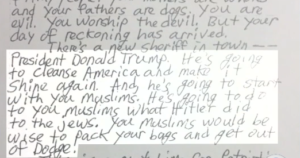 and your fathers are dogs. You are
evil. You worship the devil. But your
day of reckoning has arrived.
There's a new sheriff in town --
President Donald Trump. He's going
to cleanse America and make it
shine again. And, he's going to start
with you muslims. He's going to do
to you muslims what Hitler did
to the jews. You muslims would be
wise to pack your bags and get out
of Dodge!